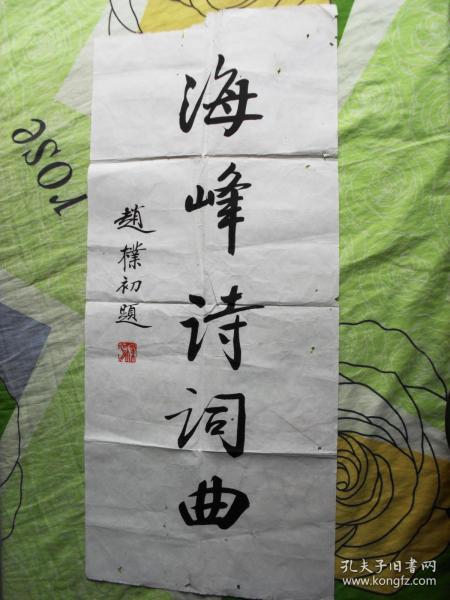 海峰诗词曲
趙樸初題
rose
孔夫子旧书网
www.kongfz.com